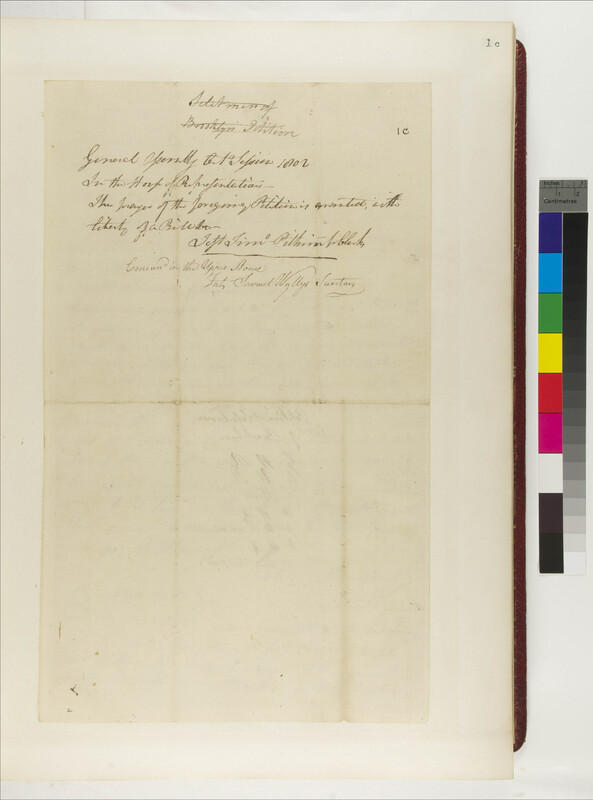 1c
Selectmen of
Brooklyn Petition
1c
General Assembly Octr Session 1802
In the House of Representatives
The prayer of the foregoing Petition is granted, with
liberty of a Bill &c
Test Timo Pitkin Jr Clerk
Concurrd in the Upper House
Test Samuel Wyllys Secretary
Inches 1 2
Centimetres